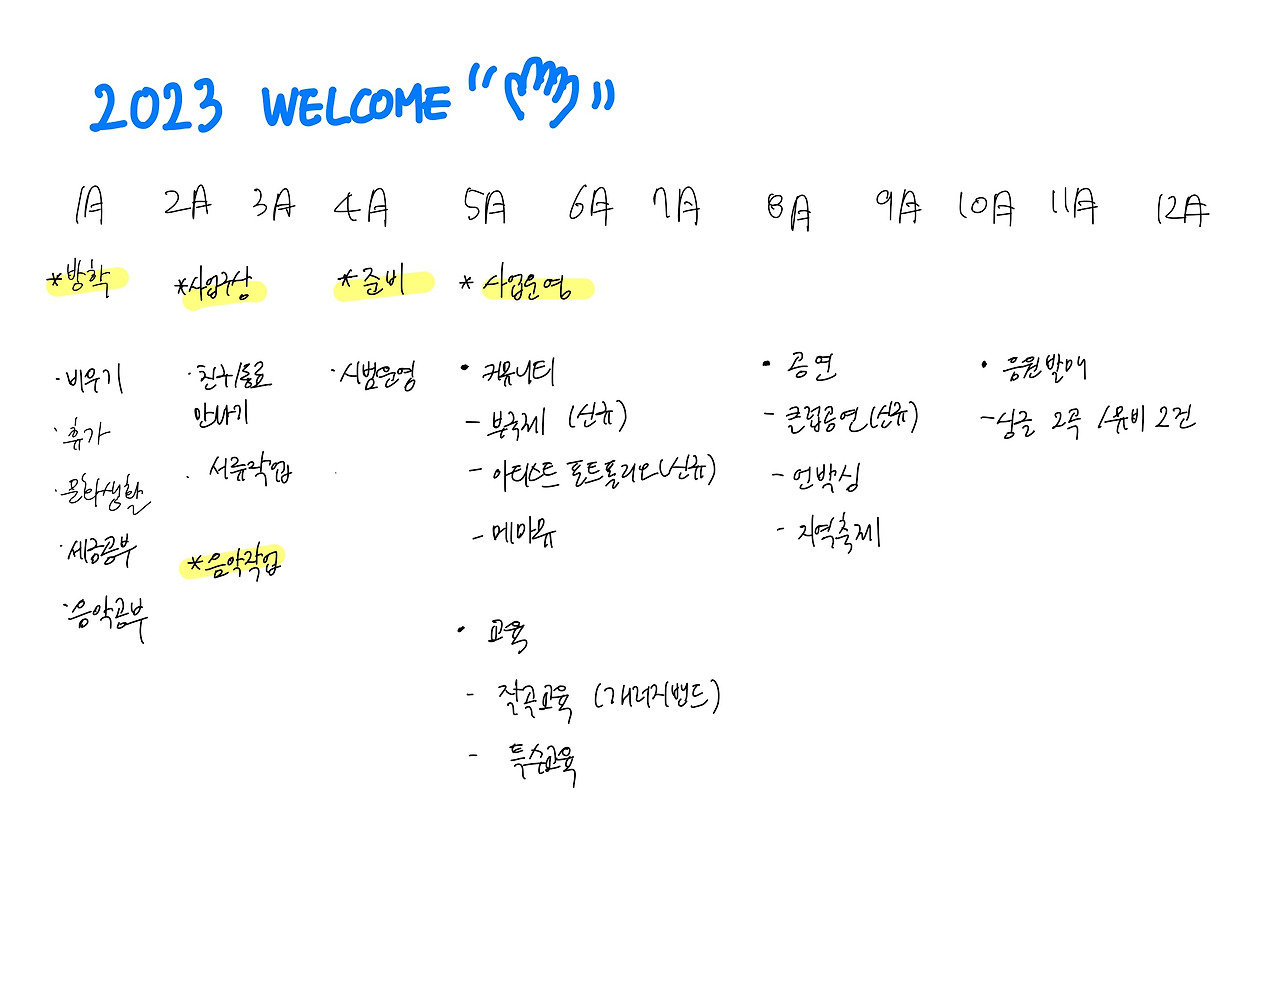 2023 WELCOME " "
1月 2月 3月 4月 5月 6月 7月 8月 9月 10月 11月 12月
*방학 *사업구상 *준비 * 사업운영
· 비우기
· 휴가
· 문화생활
· 세금공부
· 음악공부
· 친구/동료
만나기
· 서류작업
*음악작업
· 시범운영
• 커뮤니티
- 분국제 (신규)
- 아티스트 포트폴리오(신규)
- 메아유
• 교육
- 작곡교육 (개러지밴드)
- 특수교육
• 공연
- 클럽공연(신규)
- 언박싱
- 지역축제
• 음원발매
- 싱글 2곡 /뮤비 2건